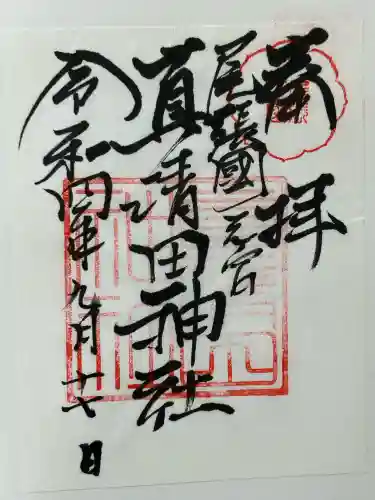 奉拝
尾張國一之宮
真清田神社
令和四年九月十七日